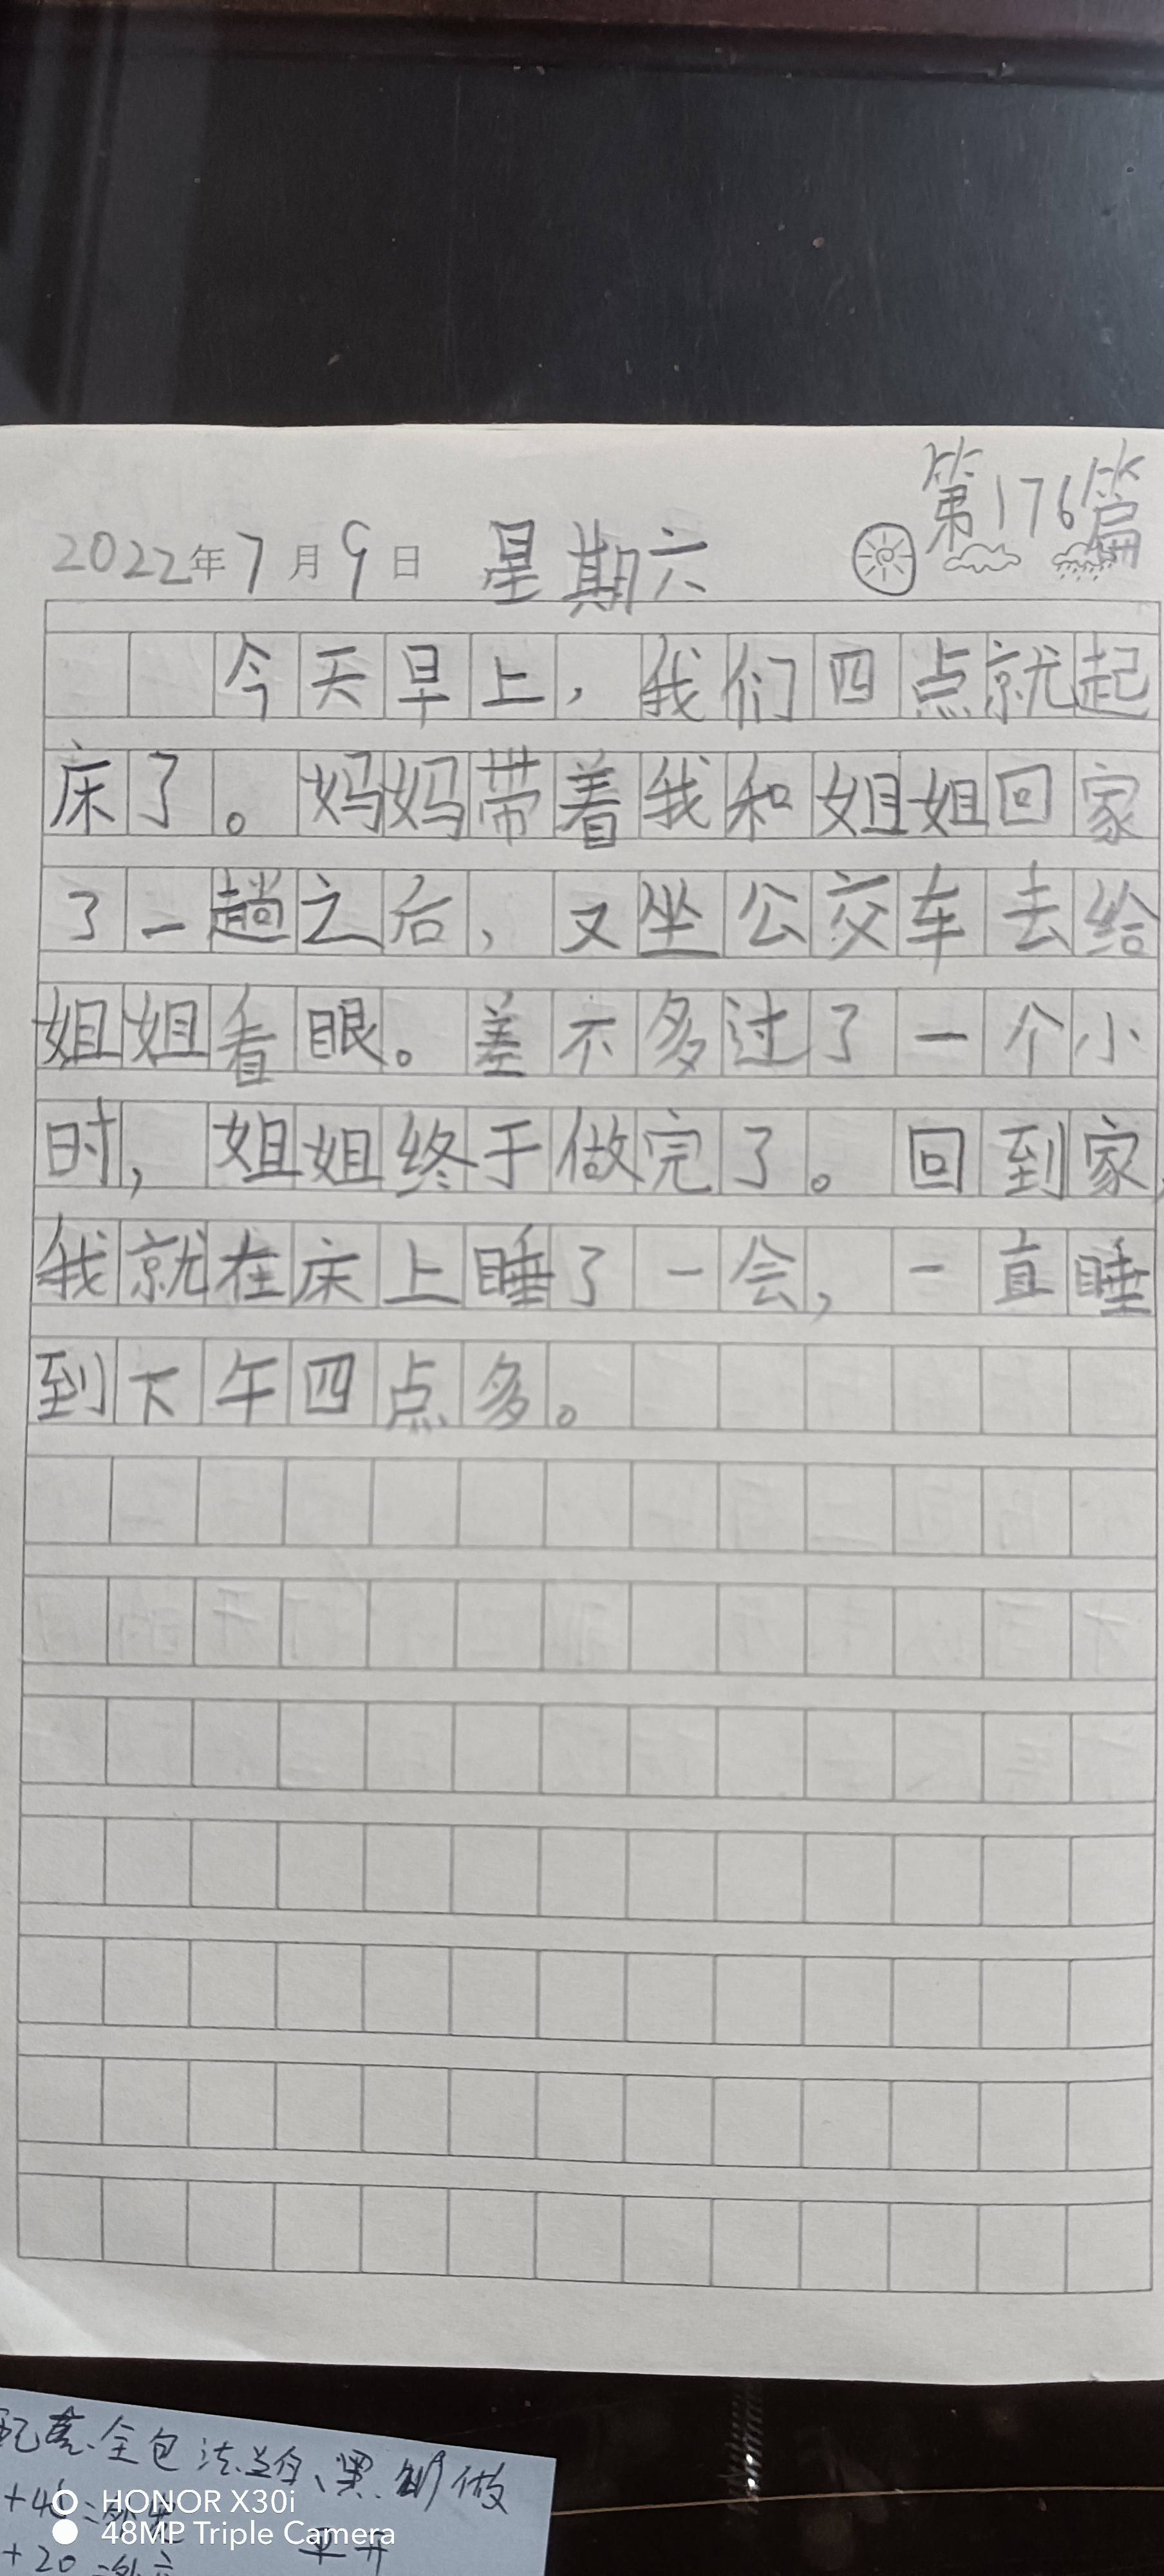 第176篇
2022年7月9日 星期六
今天早上，我们四点就起
床了。妈妈带着我和姐姐回家
了一趟之后，又坐公交车去给
姐姐看眼。差不多过了一个小
时，姐姐终于做完了。回到家，
我就在床上睡了一会，一直睡
到下午四点多。
全包
做
HONOR X30i
48MP Triple Camera
平开
+20